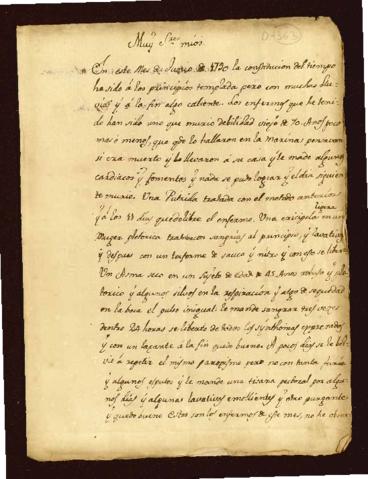 D-1363
Muy Sres mios
En este Mes de Junio de 1790 la constitucion del tiempo
ha sido á los principios templada pero con muchas llu-
vias y á la fin algo caliente. dos enfermos que he teni-
do han sido uno que murio debilidad viejo de 70 Años poco
mas ó menos, que qdo lo hallaron en la marina pensaron
si era muerto y lo llevaron a su casa y le mandé algunos
cardiacos y fomentos y nada se pudo lograr y el dia siguien
te murio. Una Putrida tratada con el metodo anterior
y á los 11 dias quedó libre el enfermo. Una erisipela ligera en una
Muger pletorica traté con sangrias al principio, y lavativas
y despues con un de sauco y nitro y con esto se libró
Un Asma seco en un sujeto de edad de 45 Años y ple-
torico y algunos silvos en la respiracion y algo de sequedad
en la boca el pulso inigual. le mandé sangrar tres veces
dentro 24 horas se libertó de todos los synthomas
y con un laxante á la fin quedó bueno. A pocos dias se le bol-
vió á repetir el mismo paroxismo pero no con tanta fuerza
y algunos esputos y le mandé una tisana pectoral por algu-
nos dias y algunas lavativas emolientes y otro purgante
y quedó bueno Estos son los enfermos de este mes, no he